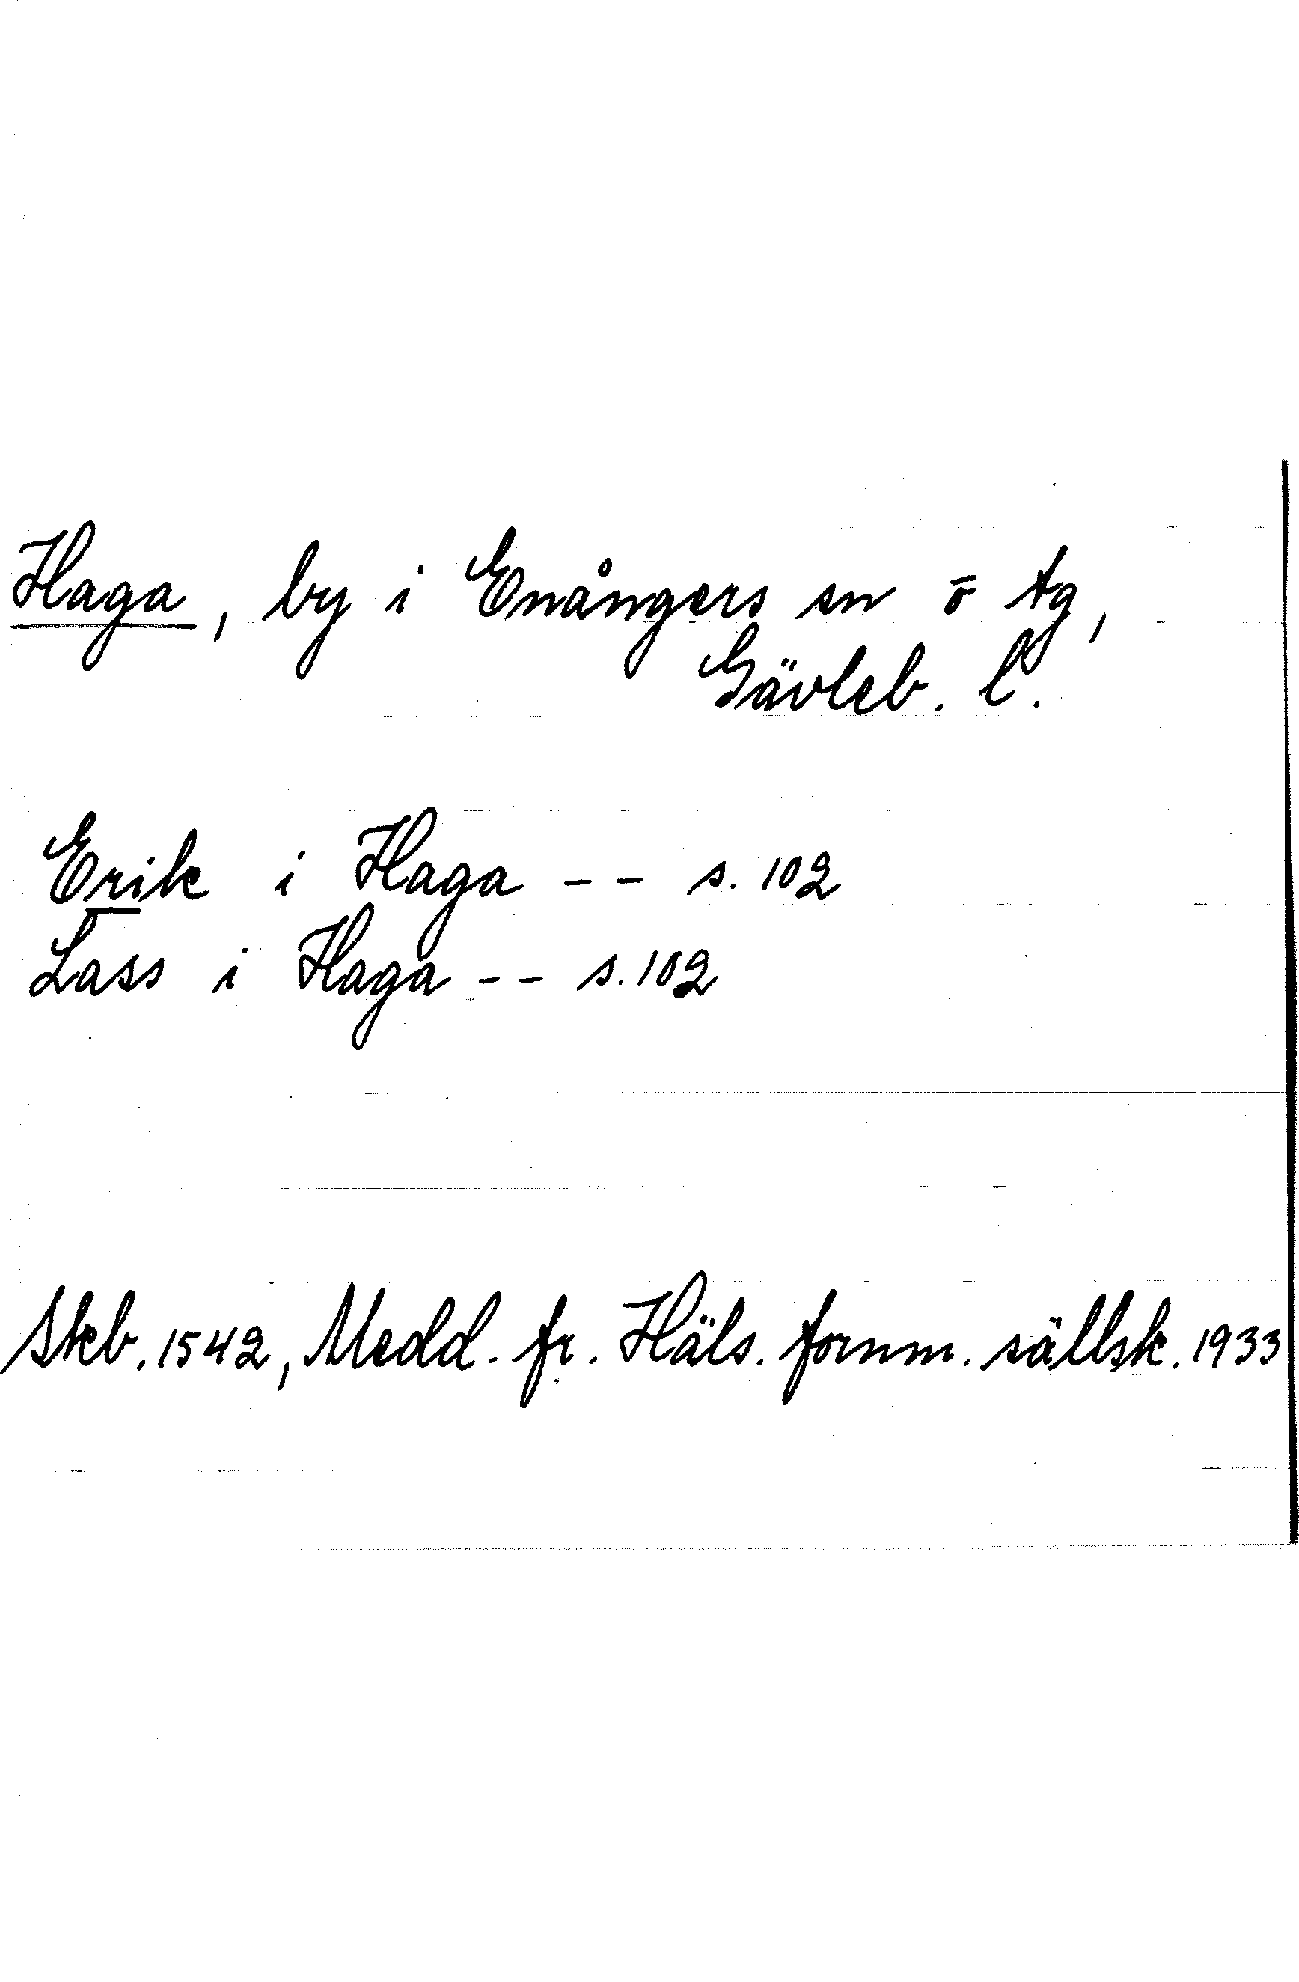 Haga, by i Enångers sn ö tg,
Gävleb. l.
Erik i Haga -- s. 102
Lass i Haga -- s. 102
Skb. 1542, Medd. fr. Häls. fornm. sällsk. 1933